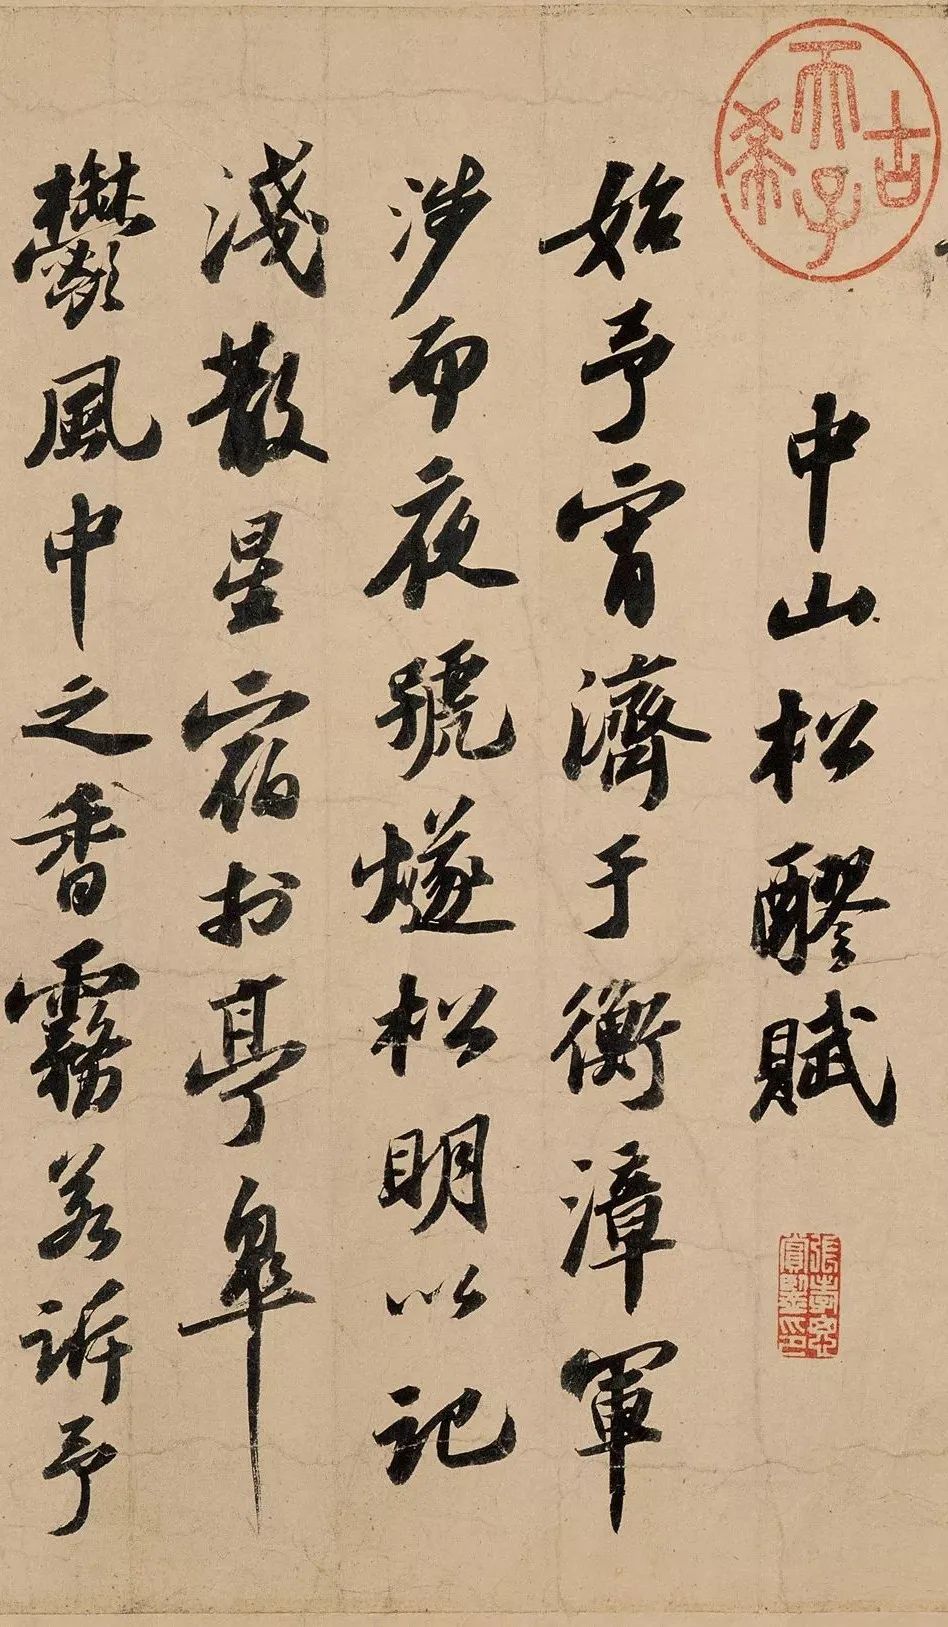 古希天子
中山松醪賦
張孝思賞鑒印
始予宵濟于衡漳軍
涉而夜號燧松明以記
淺散星宿扵亭皋
鬱風中之香霧若訴予